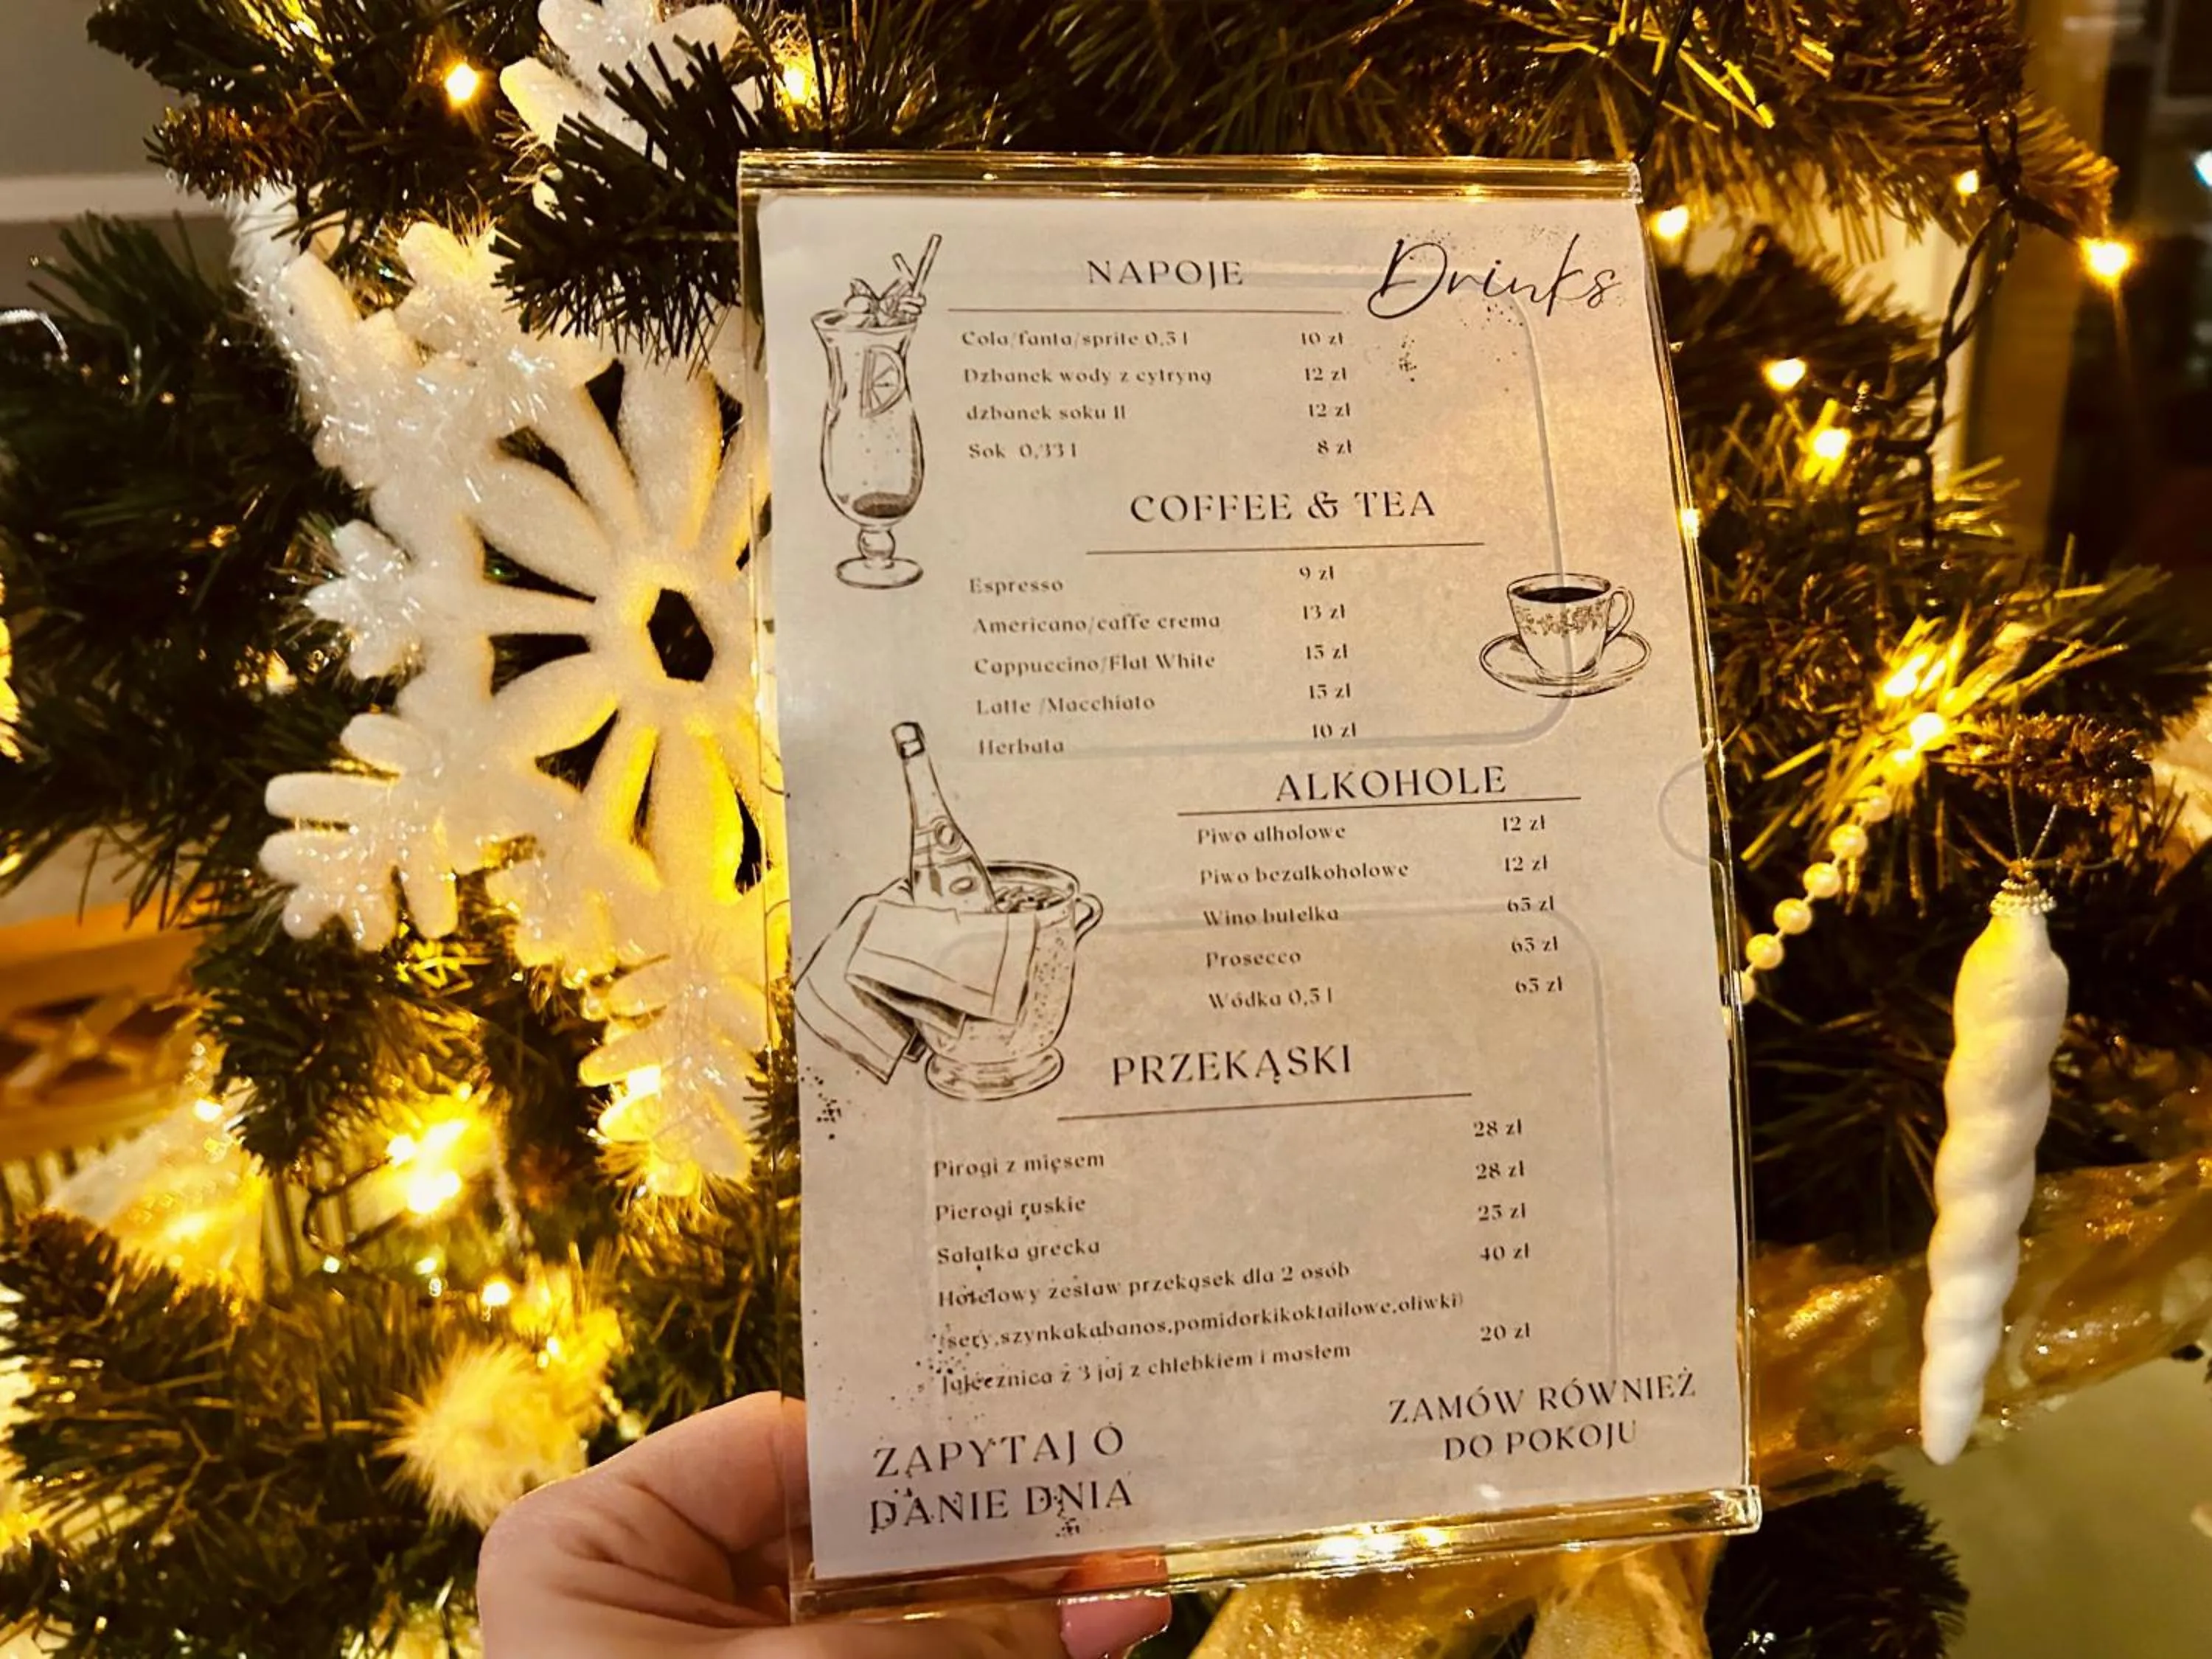 NAPOJE
Drinks
Cola/fanta/sprite 0,5 l 10 zł
Dzbanek wody z cytryną 12 zł
dzbanek soku 1l 12 zł
Sok 0,33 l 8 zł
COFFEE & TEA
Espresso 9 zł
Americano/caffe crema 13 zł
Cappuccino/Flat White 15 zł
Latte /Macchiato 15 zł
Herbata 10 zł
ALKOHOLE
Piwo alholowe 12 zł
Piwo bezalkoholowe 12 zł
Wino butelka 65 zł
Prosecco 65 zł
Wódka 0,5 l 65 zł
PRZEKĄSKI
Pirogi z mięsem 28 zł
Pierogi ruskie 28 zł
Sałatka grecka 25 zł
Hotelowy zestaw przekąsek dla 2 osób 40 zł
(sery,szynkakabanos,pomidorkikoktailowe,oliwki)
Jajecznica z 3 jaj z chlebkiem i masłem 20 zł
ZAPYTAJ O
DANIE DNIA
ZAMÓW RÓWNIEŻ
DO POKOJU